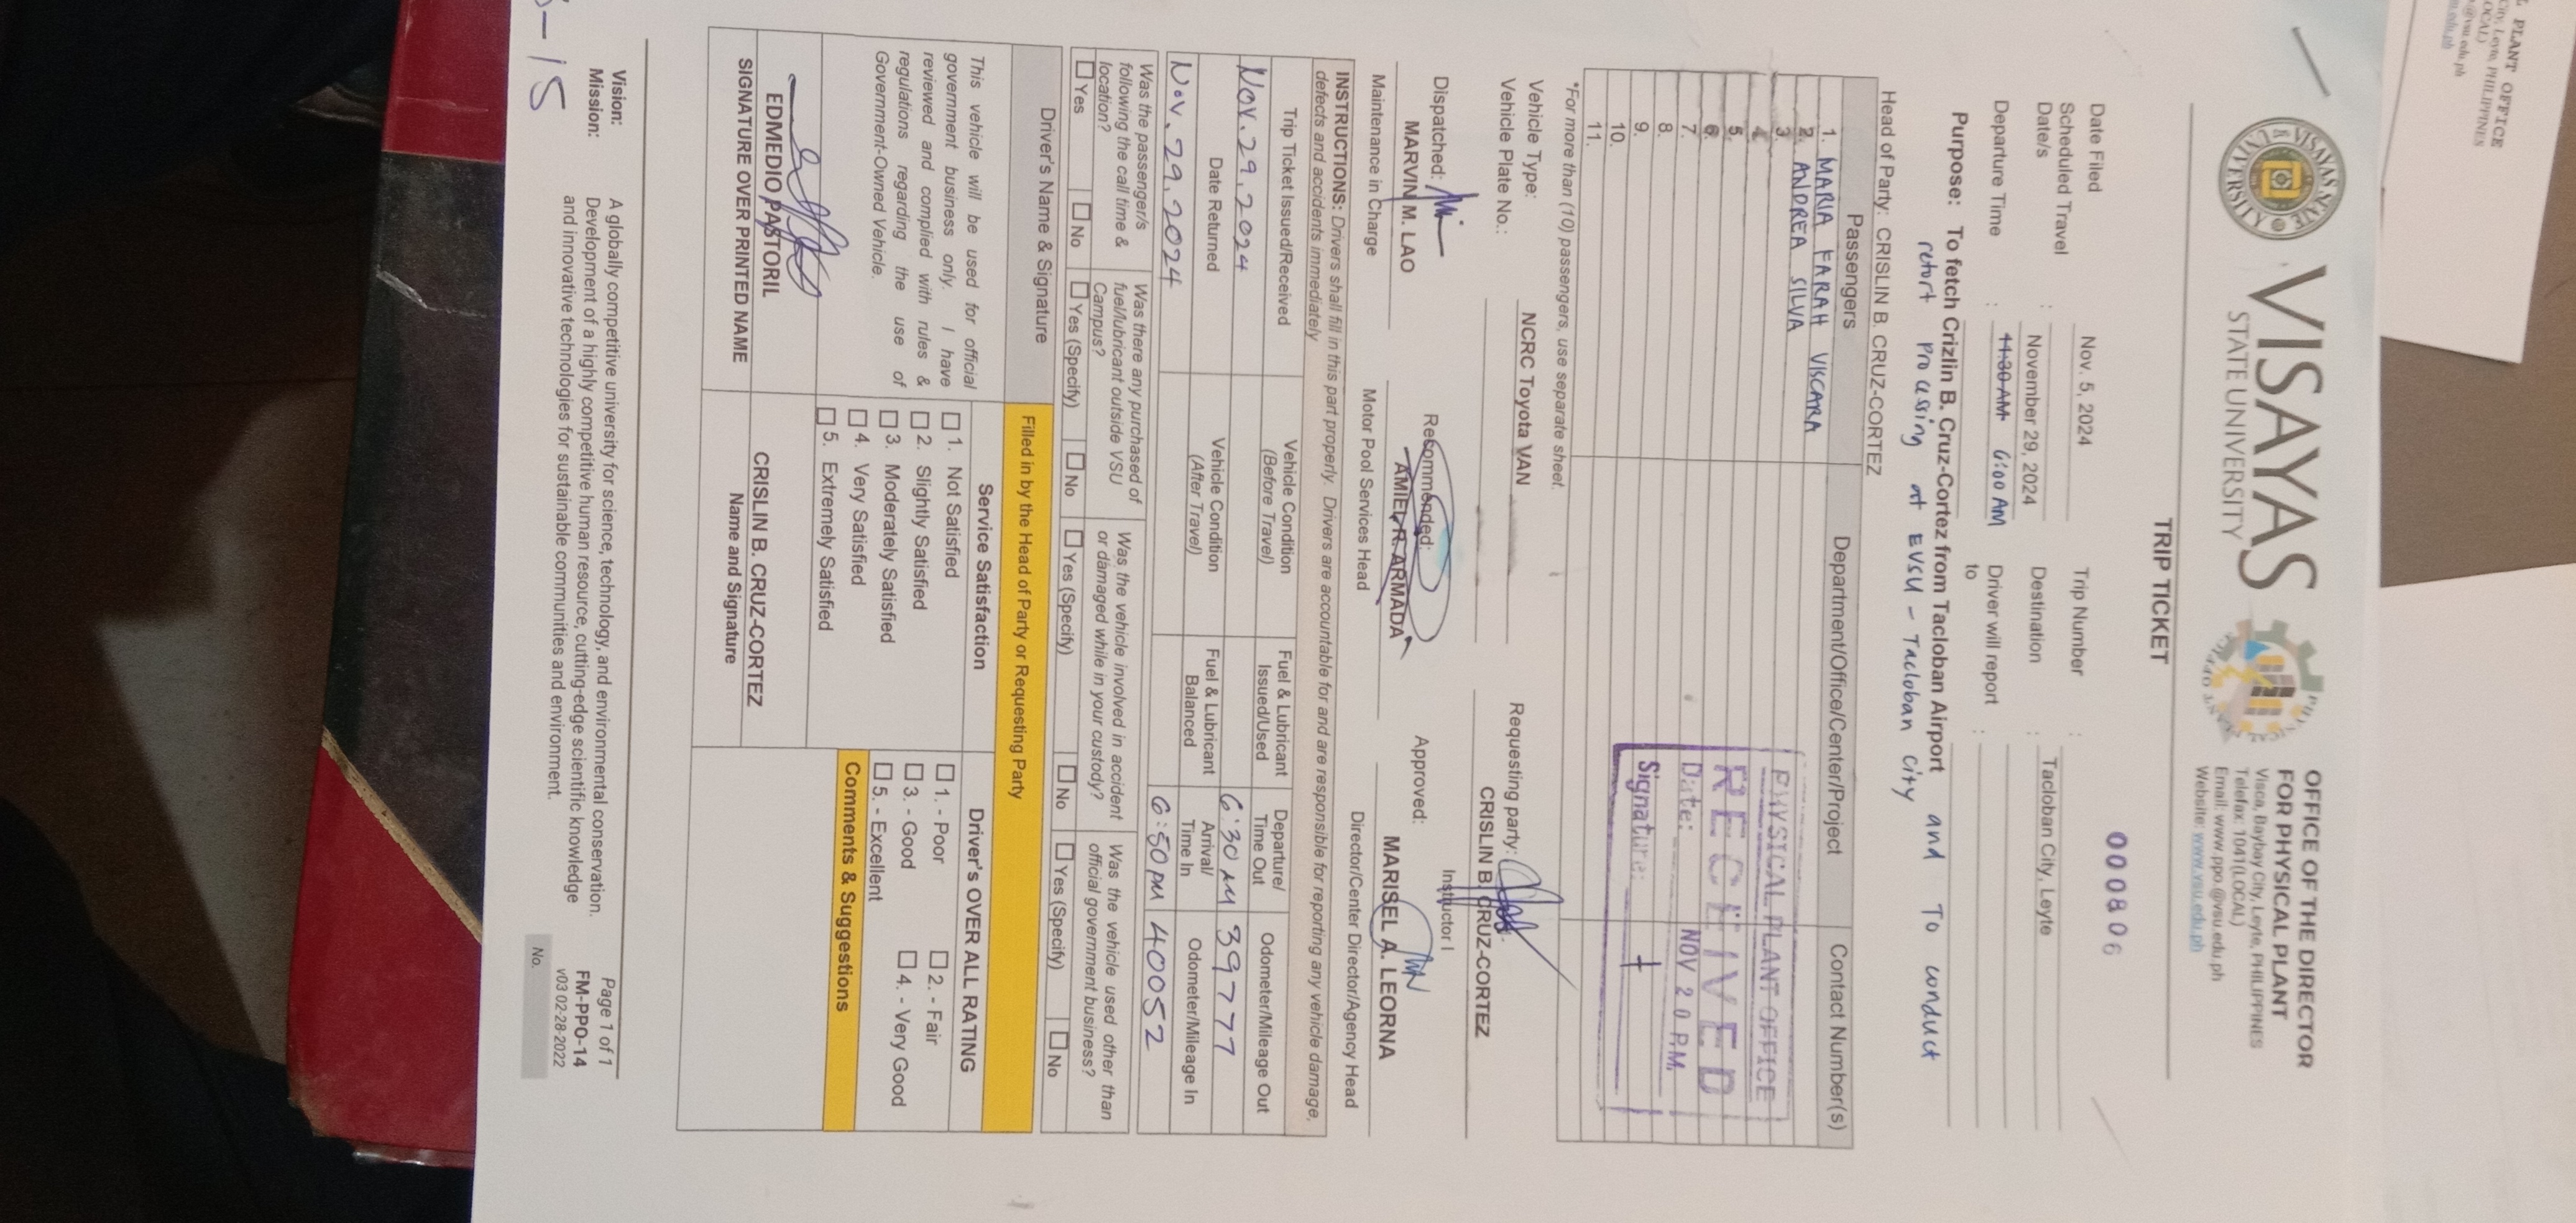 L PLANT OFFICE
City, Leyte, PHILIPPINES
OCAL)
@vsu.edu.ph
u.edu.ph
VISAYAS
STATE UNIVERSITY
OFFICE OF THE DIRECTOR
FOR PHYSICAL PLANT
Visca, Baybay City, Leyte, PHILIPPINES
Telefax: 1041(LOCAL)
Email: www.ppo.@vsu.edu.ph
Website: www.vsu.edu.ph
TRIP TICKET
000806
Date Filed : Nov. 5, 2024 Trip Number :
Scheduled Travel Date/s : November 29, 2024 Destination : Tacloban City, Leyte
Departure Time : 11:30 AM 6:00 AM Driver will report to :
Purpose: To fetch Crizlin B. Cruz-Cortez from Tacloban Airport and To conduct
retort processing at EVSU - Tacloban City
Head of Party: CRISLIN B. CRUZ-CORTEZ
Passengers Department/Office/Center/Project Contact Number(s)
1. MARIA FARAH VISCARA
2. ANDREA SILVA
3.
4.
5.
6.
7.
8.
9.
10.
11.
PHYSICAL PLANT OFFICE
RECEIVED
Date: NOV 20 P.M.
Signature:
*For more than (10) passengers, use separate sheet.
Vehicle Type: NCRC Toyota VAN
Vehicle Plate No.:
Requesting party:
CRISLIN B. CRUZ-CORTEZ
Instructor I
Dispatched: Recommended: Approved:
MARVIN M. LAO AMIEL R. ARMADA MARISEL A. LEORNA
Maintenance in Charge Motor Pool Services Head Director/Center Director/Agency Head
INSTRUCTIONS: Drivers shall fill in this part properly. Drivers are accountable for and are responsible for reporting any vehicle damage,
defects and accidents immediately
Trip Ticket Issued/Received Vehicle Condition (Before Travel) Fuel & Lubricant Issued/Used Departure/ Time Out Odometer/Mileage Out
Nov. 29, 2024 6:30 AM 39777
Date Returned Vehicle Condition (After Travel) Fuel & Lubricant Balanced Arrival/ Time In Odometer/Mileage In
Nov. 29, 2024 6:50 PM 40052
Was the passenger/s following the call time & location? Was there any purchased of fuel/lubricant outside VSU Campus? Was the vehicle involved in accident or damaged while in your custody? Was the vehicle used other than official government business?
Yes No Yes (Specify) No Yes (Specify) No Yes (Specify) No
Driver's Name & Signature Filled in by the Head of Party or Requesting Party
This vehicle will be used for official
government business only. I have
reviewed and complied with rules &
regulations regarding the use of
Government-Owned Vehicle.
EDMEDIO PASTORIL
SIGNATURE OVER PRINTED NAME
Service Satisfaction
1. Not Satisfied
2. Slightly Satisfied
3. Moderately Satisfied
4. Very Satisfied
5. Extremely Satisfied
CRISLIN B. CRUZ-CORTEZ
Name and Signature
Driver's OVER ALL RATING
1. - Poor 2. - Fair
3. - Good 4. - Very Good
5. - Excellent
Comments & Suggestions
Vision: A globally competitive university for science, technology, and environmental conservation.
Mission: Development of a highly competitive human resource, cutting-edge scientific knowledge
and innovative technologies for sustainable communities and environment.
Page 1 of 1
FM-PPO-14
v03 02-28-2022
No.
-15